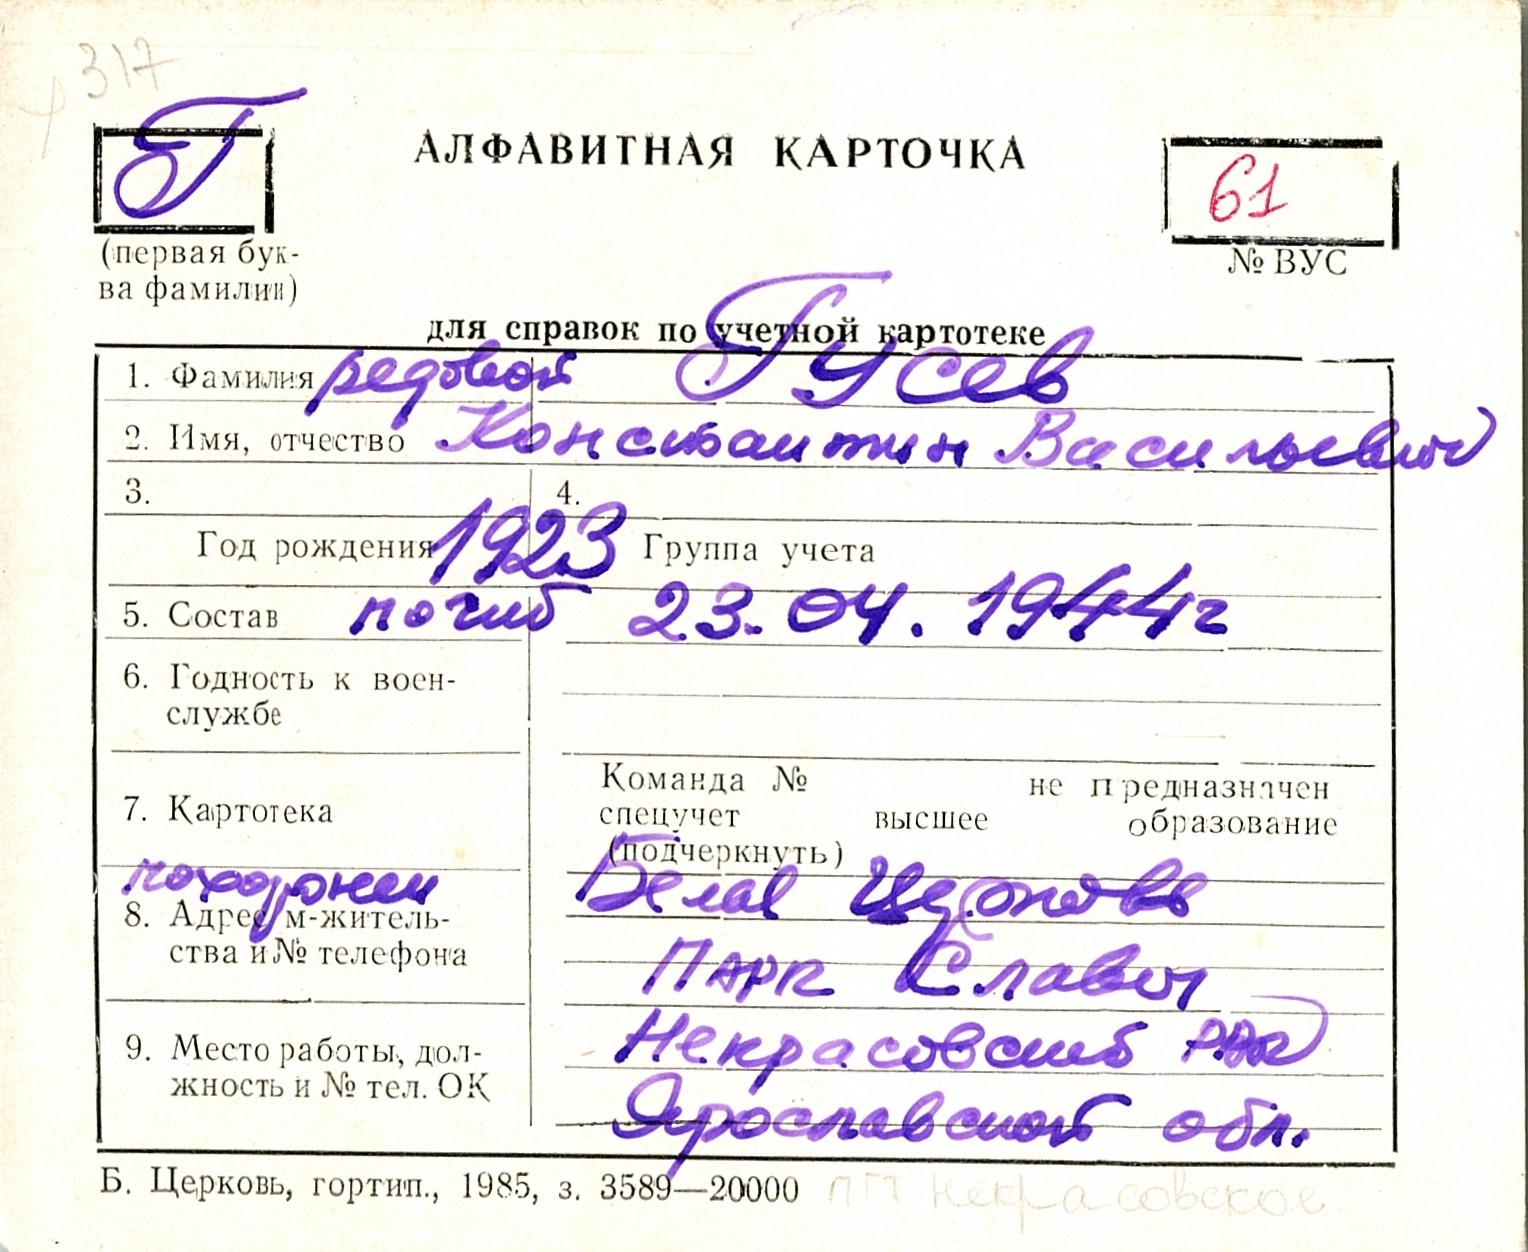 317
Г
АЛФАВИТНАЯ КАРТОЧКА
61
(первая бук-
ва фамилии)
№ ВУС
для справок по учетной картотеке
1. Фамилия рядовой Гусев
2. Имя, отчество Константин Васильевич
3.
4.
Год рождения 1923 Группа учета
5. Состав погиб 23.04.1944г
6. Годность к воен-
службе
Команда № не предназначен
7. Картотека
спецучет высшее образование
(подчеркнуть)
похоронен Белая Церковь
8. Адрес м-житель-
ства и № телефона
Парк Славы
9. Место работы, дол-
жность и № тел. ОК
Некрасовский РВК
Ярославской обл.
Б. Церковь, гортип., 1985, з. 3589—20000
пгт Некрасовское